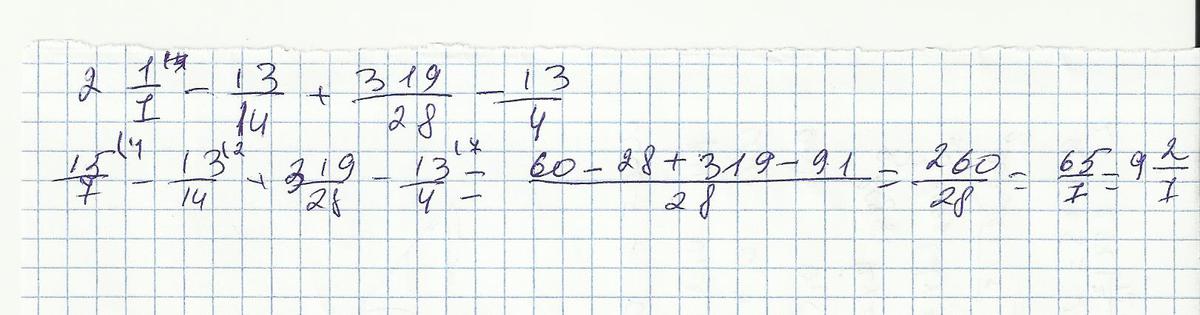 2 1/7 - 13/14 + 319/28 - 13/4
15/7 (4 - 13/14 (2 + 319/28 - 13/4 (7 = 60 - 28 + 319 - 91 / 28 = 260/28 = 65/7 = 9 2/7